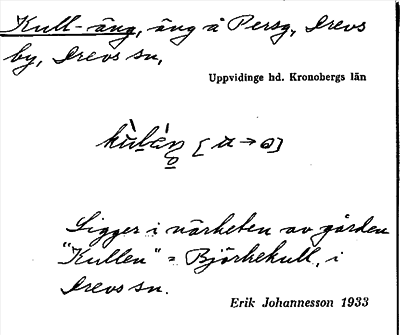 Kull-äng, äng å Persg, Drevs
by, Drevs sn,
Uppvidinge hd. Kronobergs län
Ligger i närheten av gården
"Kullen" = Björkekull, i
Drevs sn.
Erik Johannesson 1933